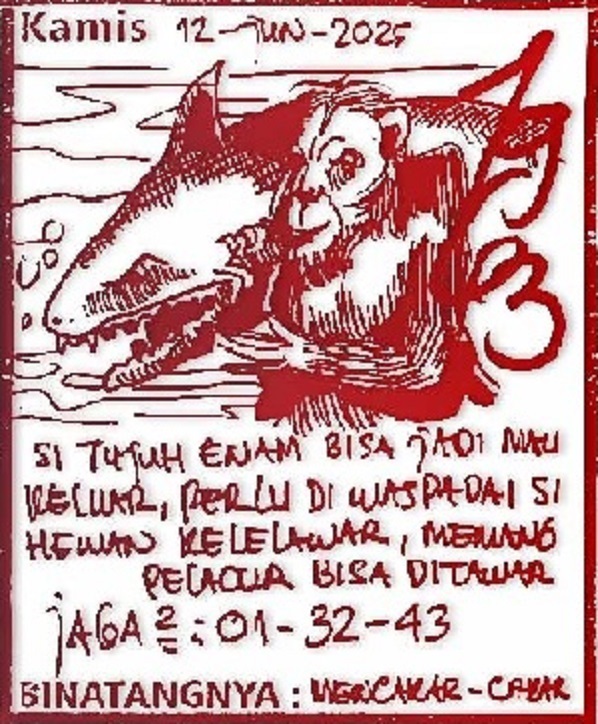 Kamis 12-JUN-2025
SI TUJUH ENAM BISA JADI MAU
KELUAR, PERLU DI WASPADAI SI
HEWAN KELELAWAR, MEMANG
PELACUR BISA DITAWAR
JAGA2 = : 01-32-43
BINATANGNYA : MENCAKAR-CAKAR